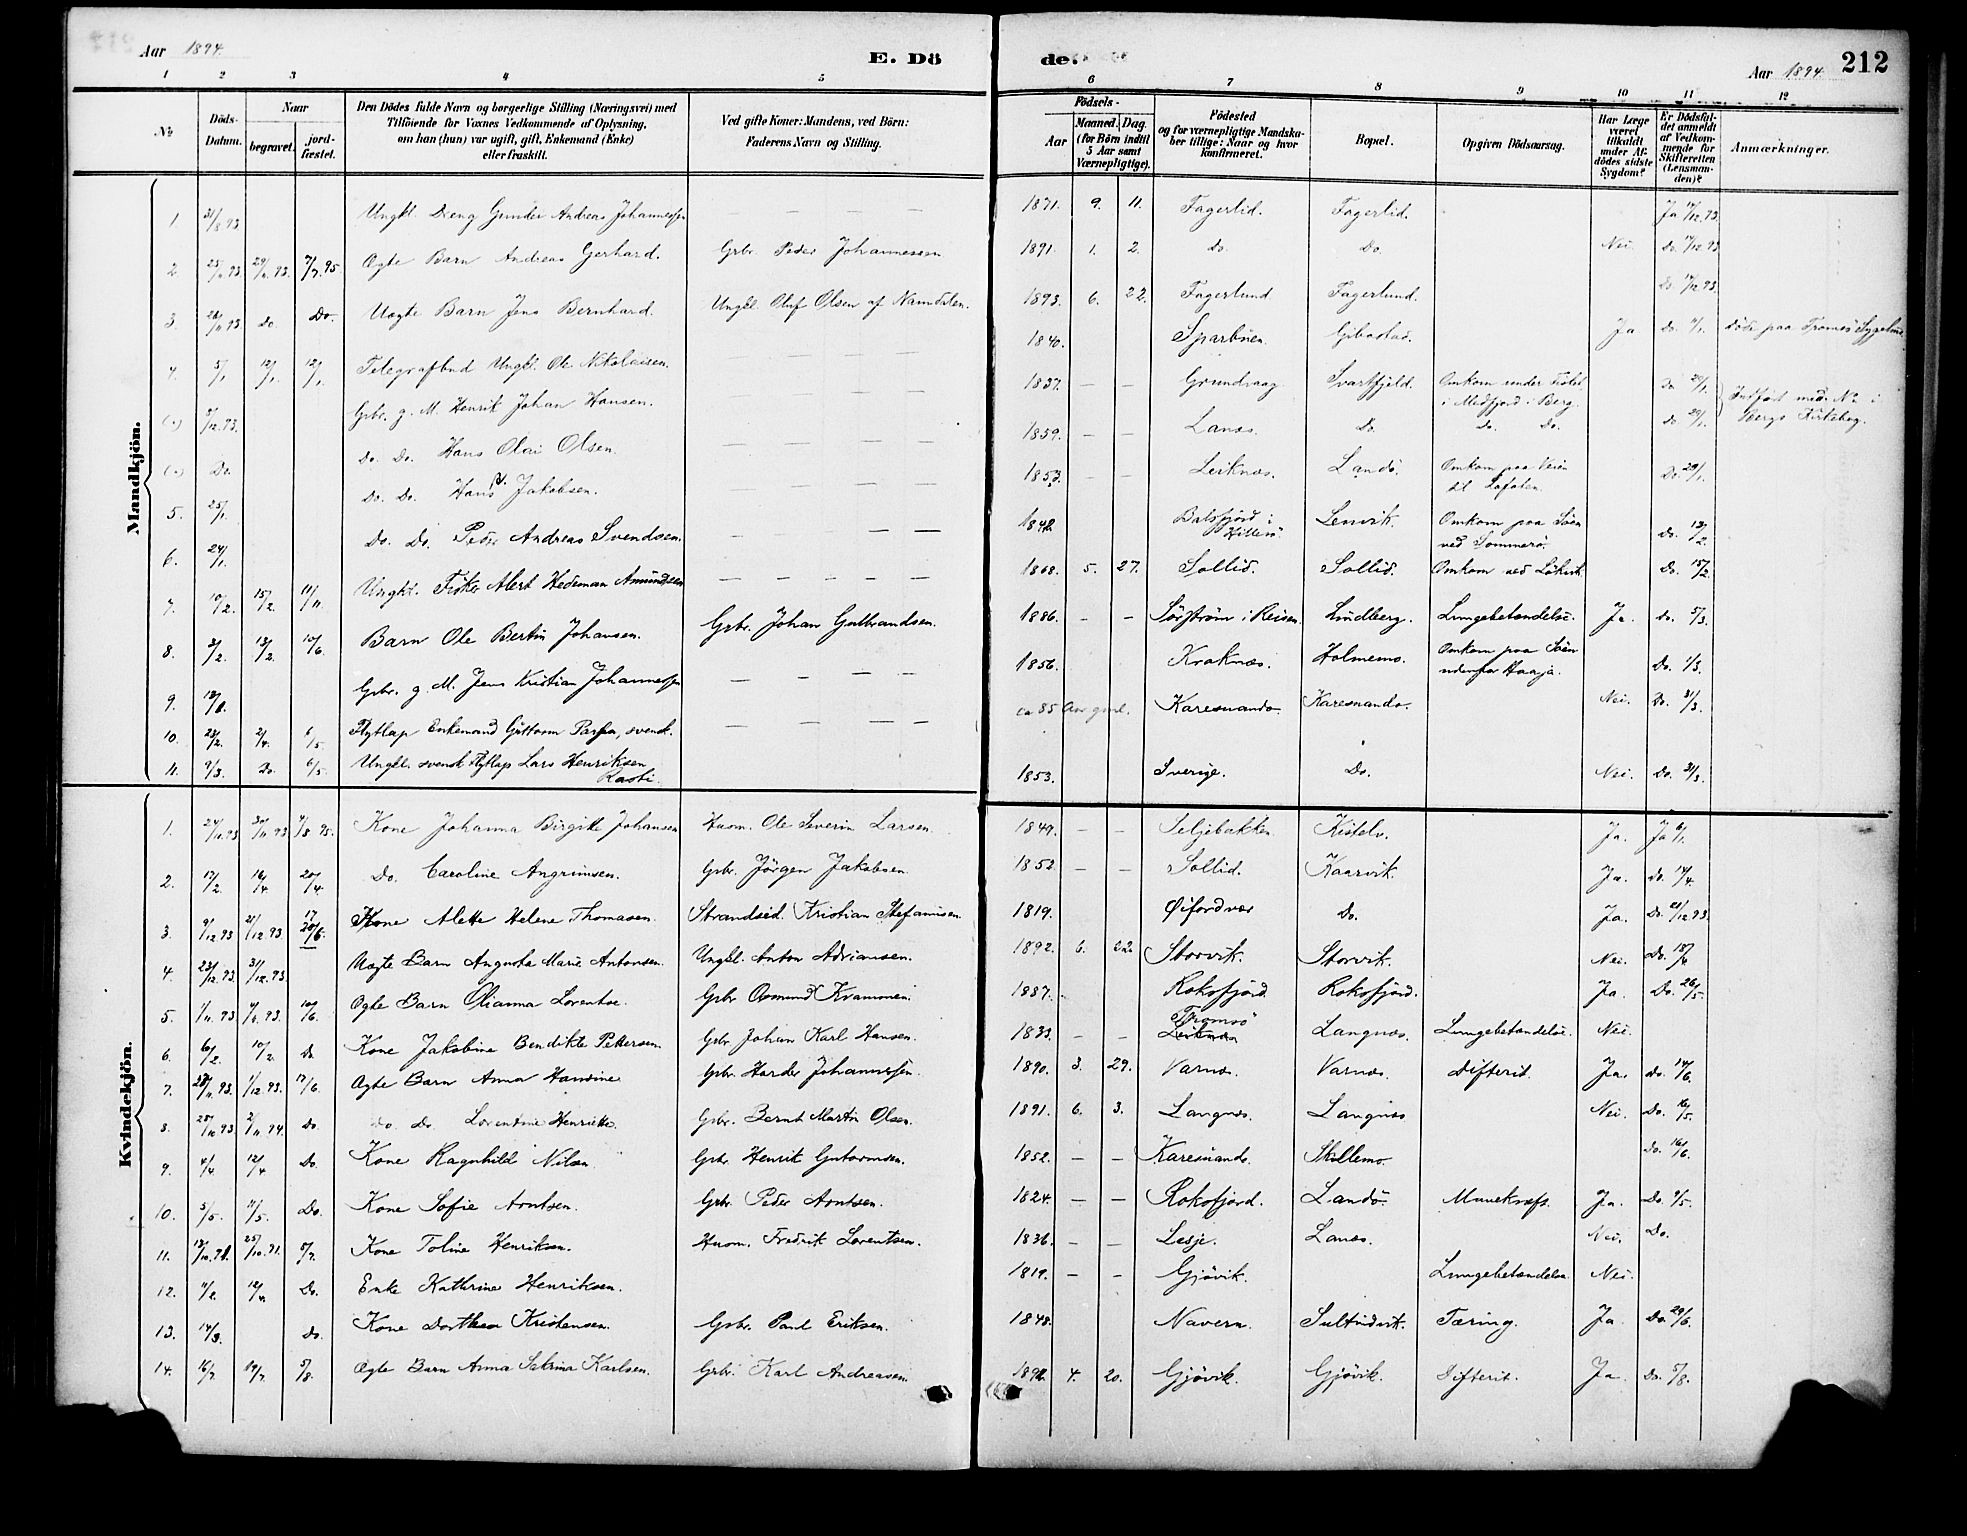 Aar 1894. E. Dö
de. Aar 1894. 212
1 2 3 4 5 6 7 8 9 10 11 12
№
Döds-Datum.
Naar
begravet.
jord-fæstet.
Den Dödes fulde Navn og borgerlige Stilling (Næringsvei) med
Tilföiende for Voxnes Vedkommende af Oplysning,
om han (hun) var ugift, gift, Enkemand (Enke)
eller fraskilt.
Ved gifte Koner: Mandens, ved Börn:
Faderens Navn og Stilling.
Födsels-
Aar
Maaned. Dag.
(for Börn indtil
5 Aar samt
Værnepligtige).
Födested
og for værnepligtige Mandska-
ber tillige: Naar og hvor
konfirmeret.
Bopæl.
Opgiven Dödsaarsag.
Har Læge
været
tilkaldt
under Af-
dödes sidste
Sygdom?
Er Dödsfal-
det anmeldt
af Vedkom-
mende for
Skifteretten
(Lensman-
den)?
Anmærkninger.
Mandkjön.
1. 31/8 93 Ungkl. Dreng Gunder Andreas Johannessen — — — — 1871. 9. 11. Fagerlid. Fagerlid. Ja 14/12.93.
2. 25/11.93. 29/11.93. 7/7.95. Ægte Barn Andreas Gerhard. Gbr. Peder Johannessen 1891. 1. 2. Do. Do. Nei Do. 14/12.93
3. 26/11.93. Do. Do. Uægte Barn Jens Bernhard. Ungkl. Oluf Olsen af Namdalen. 1893. 6. 22. Fagerlund Fagerlund. Do 14/12.93.
4. 5/1 12/1. 12/1 Telegrafbud Ungkl. Ole Nikolaisen. — — — 1840. Sparbuen. Gibostad. Ja Do. döde paa Tromsö Sygehus.
5/12.93. Gbr. g. M. Henrik Johan Hansen. — — — — 1837. — — Grundvaag Svartfjeld. Omkom under Fiskeri
i Medfjord i Berg. Do 29/1. Indfört med No i
Bergs Kirkebog.
Do Do. Do. Hans Olai Olsen. — — — — 1859. — — Lanæs. Do. Do. Do. Do 29/1.
5. 25/1. Do. Do. Hans P. Jakobsen. — — — — 1853. — — Leiknæs. Landö. Omkom paa Veien
til Lofoten. Do 29/1.
6. 24/1. Do. Do. Peder Andreas Svendsen. — — — 1842 Balsfjord i
Hillesö. Lenvik. Omkom paa Söen
ved Sommerö. Do. 12/2.
7. 10/2. 15/2. 11/11. Ungkl. Fisker Alert Hedeman Amundsen — — — — — 1868. 5. 27. Sollid. Sollid. Omkom ved Do. 15/2.
8. 9/2. 13/2. 10/6. Barn Ole Bertin Johansen. Gbr. Johan Gulbrandsen. 1886. - - Sörström i Reisen. Lindberg. Lungebetændelse. Ja. Do. 5/3.
9. Gbr. g. M. Jens Kristian Johannessen — — — — 1856. Kraknæs. Holmemo. Omkom paa Söen
udenfor Haaja. Do. 1/3.
10. 23/2. 2/4. 6/5. Flytlap Enkemand Guttorm svensk. — — — — ca 85 Aar gml. Karesuando. Karesuando. Nei. Do. 31/3.
11. 9/3. Do. 6/5. Ungkl. svensk Flytlap Lars Henriksen
Rasti. 1853. Sverige. Do. Nei. Do. 31/3.
Kvindekjön.
1. 24/11.93 30/11 93 4/8.95. Kone Johanna Birgitte Johansen Husm. Ole Severin Larsen. 1849. — — Seljebakken Kistelv. Ja. Ja 6/1.
2. 12/2. 16/4 20/4. Do. Caroline Angrimsen. Gbr. Jörgen Jakobsen. 1852. — — Sollid. Kaarvik. Ja. Do. 14/4.
3. 9/12.93 21/12 93. 17
20/6. Kone Alette Helene Thomasen. Strandsid. Kristian Stefanusen. 1819. Øifordvær Do. Ja. Do. 21/12 93.
4. 23/12.93. 31/12.93. Uægte Barn Augusta Marie Antonsen. Ungkl. Anton Adriansen. 1892. 6. 22. Storvik. Storvik. Nei. Do.
5. 1/11.93 10/6. Ægte Barn Olianna Lorentse. Gbr. Osmund Kvammen. 1887. Roksfjord. Roksfjord. Ja. Do. 26/5.
6. 6/2. 10/2. Do Kone Jakobine Bendikte Pettersen Gbr. Johan Karl Hansen. 1833. — — Tromsö
Leiknæs Langnæs. Lungebetændelse. Nei.
7. 28/11.93. 1/12.93. 17/6. Ægte Barn Anna Hansine Gbr. Harder Johannessen. 1890. 3. 29. Varnæs. Varnæs. Difterit. Ja. Do. 14/6.
8. 25/10 93 2/11.94. Do. Do. Do. Lorentine Henriette. Gbr. Bernt Martin Olsen. 1891. 6. 3. Langnæs. Langnæs Nei. Do. 16/5.
9. 4/4 12/4 Do. Kone Ragnhild Nilsen. Gbr. Henrik Guttormsen. 1852. — — Karesuando. Skillemo. Do. 16/6.
10. 5/5. 11/5. Do. Kone Sofie Arntsen. Gbr. Peder Arntsen. 1824. — — Roksfjord. Landö. Mavekræft. Ja. Do. 9/5.
11. 25/10.91. 5/7. Kone Toline Henriksen. Husm. Fredrik Lorentsen. 1836. — — Lesje. Lanæs. Nei. Do.
12. 12/4. Do. Enke Kathrine Henriksen. 1819. — — Gjövik. Lungebetændelse. Nei.
13. 14/3. Do. Kone Dorthea Kristensen. Gbr. Paul Eriksen. 1848. Navern. Sultindvik. Tæring. Ja Do. 29/6.
14. 16/7. 19/7. 5/8. Ægte Barn Anna Sabrina Karlsen. Gbr. Karl Andreasen. 1892. 4. 20. Gjövik. Gjövik. Difterit. Ja. Do. 5/8.